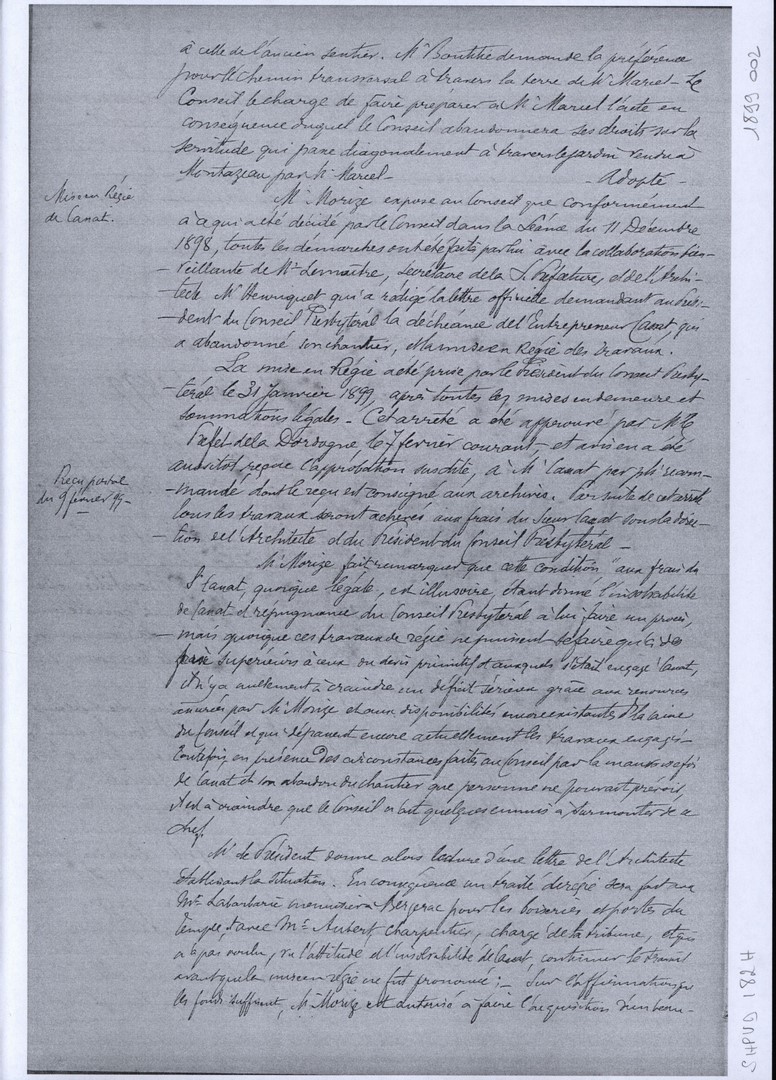 à celle de l'ancien sentier. Mr Bonthe demande la préférence
pour le chemin transversal à travers la terre de Mr Marcel - Le
Conseil le charge de faire préparer à Mr Marcel l'acte en
conséquence duquel le Conseil abandonnera ses droits sur la
servitude qui passe diagonalement à travers le jardin vendu à
Montazeau par Mr Marcel - Adopté -
Mise en Régie
de Canat.
Mr Morize expose au Conseil que conformément
à ce qui a été décidé par le Conseil dans la Séance du 11 Décembre
1898, toutes les démarches ont été faites par lui avec la collaboration bien-
-veillante de Mr Lemaître, secrétaire de la S. Préfecture, et de l'Archi-
-tecte Mr Henriquet qui a rédigé la lettre officielle demandant au Prési-
-dent du Conseil Presbytéral la déchéance de l'Entrepreneur Canat, qui
a abandonné son chantier, et la mise en Régie des travaux.
La mise en Régie a été prise par le Président du Conseil Presby-
-téral le 31 Janvier 1899, après toutes les mises en demeure et
sommations légales - Cet arrêté a été approuvé par Mr le
Préfet de la Dordogne le 7 février courant, et avis en a été
Reçu postal
du 9 février 99 -
aussitôt reçue l'approbation susdite, à Mr Canat par pli recom-
-mandé dont le reçu est consigné aux archives. Par suite de cet arrêté
tous les travaux seront achevés aux frais du sieur Canat sous la direc-
-tion de l'Architecte et du Président du Conseil Presbytéral -
Mr Morize fait remarquer que cette condition "aux frais du
Sr Canat, quoique légale, est illusoire, étant donné l'insolvabilité
de Canat et répugnance du Conseil Presbytéral à lui faire un procès,
- mais quoique ces travaux de régie ne puissent se faire qu'à des
prix supérieurs à ceux du devis primitif et auxquels s'était engagé Canat,
il n'y a nullement à craindre un déficit sérieux grâce aux ressources
assurées par Mr Morize et aux disponibilités encore existantes ds la caisse
du Conseil et qui dépassent encore actuellement les travaux engagés -
Toutefois, en présence des circonstances faites au Conseil par la mauvaise foi
de Canat et son abandon du chantier que personne ne pouvait prévoir,
il est à craindre que le Conseil n'ait quelques ennuis à surmonter de ce
chef.
Mr le Président donne alors lecture d'une lettre de l'Architecte
établissant la situation. En conséquence un traité de régie sera fait avec
Mr Labarbarie menuisier à Bergerac pour les boiseries et portes du
temple, et avec Mr Aubert, charpentier, chargé de la tribune, et qui
n'a pas voulu, vu l'attitude et l'insolvabilité de Canat, continuer le travail
avant que la mise en régie ne fut prononcée; - Sur l'affirmation que
les fonds suffiront, Mr Morize est autorisé à faire l'acquisition d'un beau-
1899 002
SHPVD 182 H